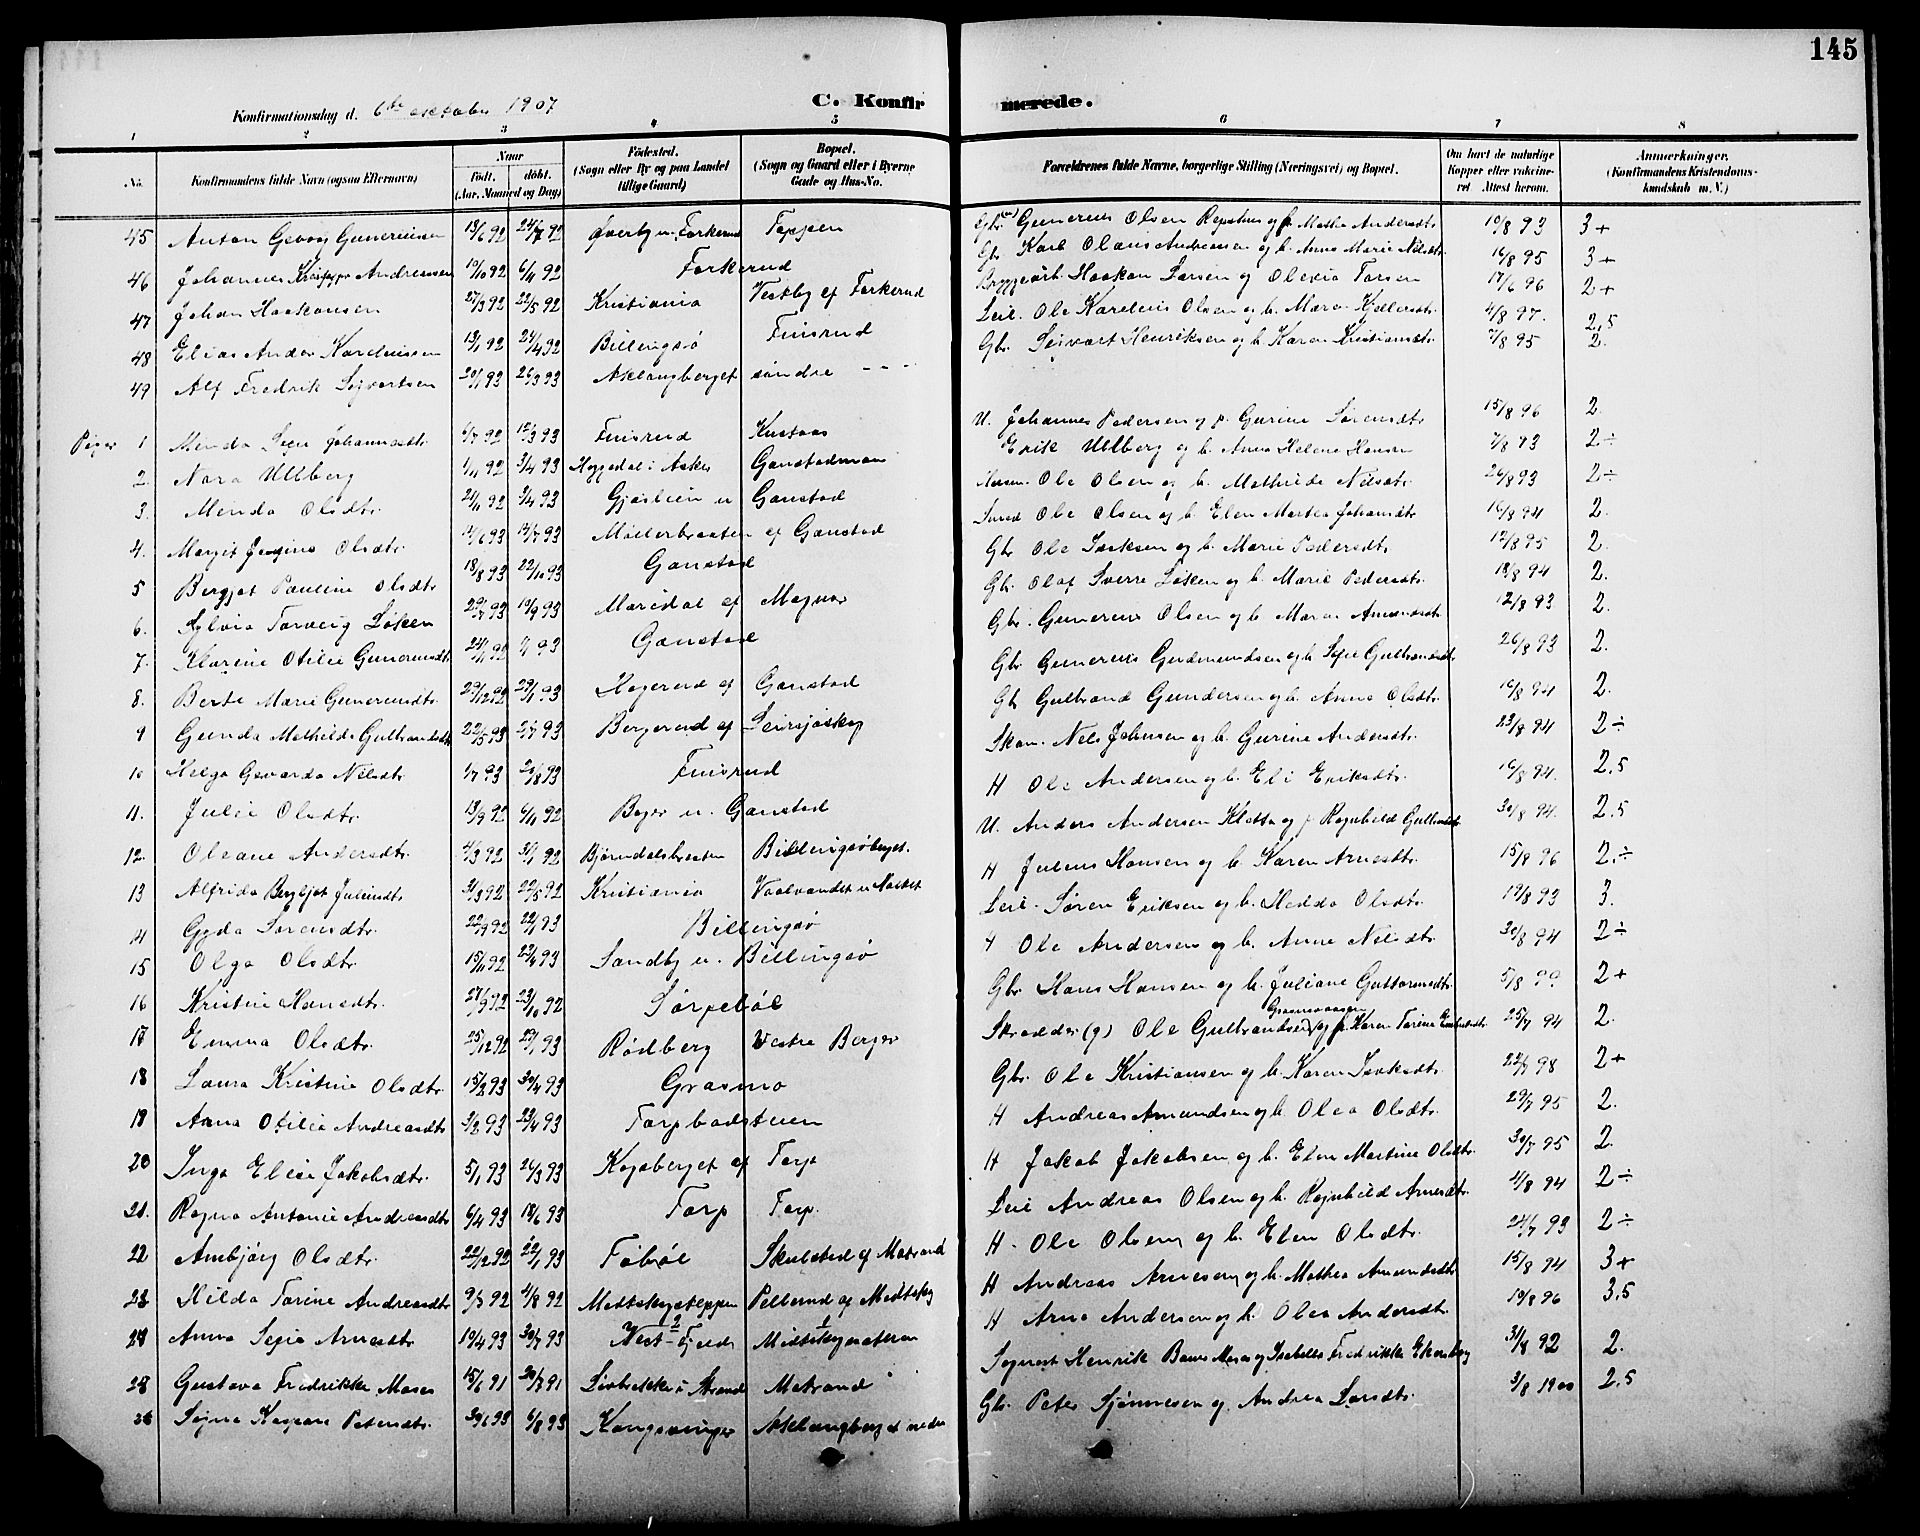 145
C. Konfirmerede.
Konfirmationsdag d. 6te oktober 1907
1 2 3 4 5 6 7 8
No. Konfirmandens fulde Navn (ogsaa Efternavn) Naar født. døbt. (Aar, Maaned og Dag) Fødested. (Sogn eller By og paa Landet tillige Gaard) Bopæl. (Sogn og Gaard eller i Byerne Gade og Hus-No. Forældrenes fulde Navne, borgerlige Stilling (Næringsvei) og Bopæl. Om havt de naturlige Kopper eller vakcineret Attest herom. Anmærkninger. (Konfirmandens Kristendomskundskab m. V.)
45 Anton Georg Gunerius­sen 13/6 92 24/7 92 Øverby u. Forkerud Toppen Gbr. Gunerius Olsen og h. Mathea Andersdtr 10/8 93 3+
46 Johannes Andreassen 19/10 92 6/11 92 Forkerud Gbr. Karl Olaus Andreassen og h. Anna Marie Nilsdtr. 16/8 95 3+
47 Johan Haakonsen 27/3 92 22/5 92 Kristiania Vestby af Forkerud Byggearb. Haakon Larsen og Olevia Larsen 17/6 96 2+
48 Elias Ander Kareliussen 13/1 92 24/4 92 Billingsø Finsrud Leil. Ole Karelius Olsen og h. Maren Kjellersdtr. 4/8 97. 2,5
49 Alf Fredrik Sigvartsen 20/1 93 26/3 93 Aklangberget søndre Gbr Seivart Henriksen og h. Karen Kristiansdtr. 7/8 95 2.
Piger 1 Menda Johannsdtr. 6/7 92 12/3 93 Finsrud Kustaas U. Johannes Pedersen og p. Gurine Sørensdtr. 15/8 96 2.
2. Nora Ullberg 1/11 92 3/4 93 Heggedal i Asker Ganstadmoen Erik Ullberg og h. Anna Helene Hansen 7/8 93 2÷
3. Menda Olsdtr. 21/11 92 3/4 93 Gjøslien u Ganstad Ole Olsen og h. Mathilde Nilsdtr. 26/8 93 2÷
4. Margit Olsdtr. 14/6 93 13/7 93 Møllerbraaten af Ganstad Smed Ole Olsen og h. Elen Martea Johansdtr 16/8 94 2.
5 Bergjot Pauline Olsdtr 18/8 93 22/10 93 Ganstad Gbr Ole Isaksen og h. Marie Pedersdtr 12/8 95 2.
6. Sylvia Torveig Løken 29/7 93 19/9 93 Maridal af Magnor Gbr. Olaf Sverre Løken og h. Marie Pedersdtr. 18/8 94 2.
7. Klarine Otilie Gunerusdtr. 24/11 92 1/1 93 Ganstad Gbr. Gunerius Olsen og h. Maren Amundsdtr 12/8 93 2.
8. Berte Marie Gunerusdtr. 29/12 92 29/1 93 Hagerud af Ganstad Gbr Gunerius Gudmundsen og h. Sofie Gulbrandsdtr 26/8 93 2.
9 Gunda Mathilde Gulbrandsdtr 22/5 93 93 Bergerud af Leirsjøskog Gb Gulbrand Gundersen og h. Anna Olsdtr. 16/8 94 2.
10 Helga Gevarda Nilsdtr. 1/7 93 20/8 93 Finsrud Skom. Nils Johnsen og h. Gurine Andersdtr. 23/8 94 2÷
11. Julie Olsdtr. 13/9 92 6/11 92 Beger u. Ganstad H Ole Andersen og h. Eli Eriksdtr. 16/8 94. 2,5
12. Oleane Andersdtr. 4/3 92 3/1 92 Bjørndalsbraaten Billingsøberget. U. Anders Andersen Kletta og p Ragnhild Gulbrandsdtr 30/8 94. 2,5
13 Alfrida Bergljot Juliusdtr 31/3 92 22/5 92 Kristiania Vaalvandet u Mastet H Julius Hansen og h. Karen Arnesdtr. 15/8 96 2.÷
14 Gyda Sørensdtr. 22/9 92 22/1 93 Billingsø Leil. Søren Eriksen og h. Hedda Olsdtr. 19/8 93 3.
15 Olga Olsdtr. 15/11 92 23/4 93 Sandby u. Billingsø H Ole Andersen og h. Anne Nilsdtr. 30/8 94 2÷
16 Kristine Hansdtr. 27/9 92 23/10 92 Sørpebøl Gbr Hans Hansen og h. Juliane Guttormsdtr. 5/8 99 2+
17 Emma Olsdtr. 25/12 92 29/1 93 Rødberg Vestre Berger Skrædder (g) Ole Gulbrandsen og h. Karen Torine 25/7 94 2.
18 Laura Kristine Olsdtr. 15/2 93 30/4 93 Grasmo Gbr. Ole Kristiansen og h. Karen Isaksdtr. 22/7 98 2+
19 Anna Otilie Andreasdtr. 3/2 93 23/4 93 Torpbadstuen H Andreas Amundsen og h. Olea Olsdtr. 29/7 95 2.
20 Inga Elise Jakobsdtr. 5/1 93 26/3 93 Hagaberget af Torp H Jakob Jakobsen og h. Elen Martine Olsdtr. 30/7 95 2.
21. Ragna Antonie Andreasdtr 6/4 93 18/6 93 Torp Torp. Leil Andreas Olsen og h. Ragnhild Arnesdtr. 4/8 94 2÷
22 Ambjørg Olsdtr. 22/12 92 22/1 93 Føbøl Skulstad af Matrand H. Ole Olsen og h. Elen Olsdtr. 24/7 93 2÷
23 Hilda Torine Andreasdtr 9/3 92 4/8 92 Midtskogsteppen Pellerud af Midtskog H Andreas Arnesen og h. Mathea Amundsdtr. 15/8 94 3+
24 Anna Sofie Arnesdtr. 19/4 93 30/7 93 Vest Fjeld Midtskogsæteren H Arne Andersen og h. Olea Andersdtr. 19/8 96 3,5
25 Gustava Fredrikke Moses 15/6 91 20/7 91 Løvbrække i Strand Matrand Sognest Henrik Moses og Isabella Fredrikke 31/8 92 2.
26 Signe Kaspara Petersdtr. 30/6 93 6/8 93 Kongsvinger Aklangberget nedre Gbr. Peter Sjønnesen og Andrea Larsdtr. 3/8 1900 2,5